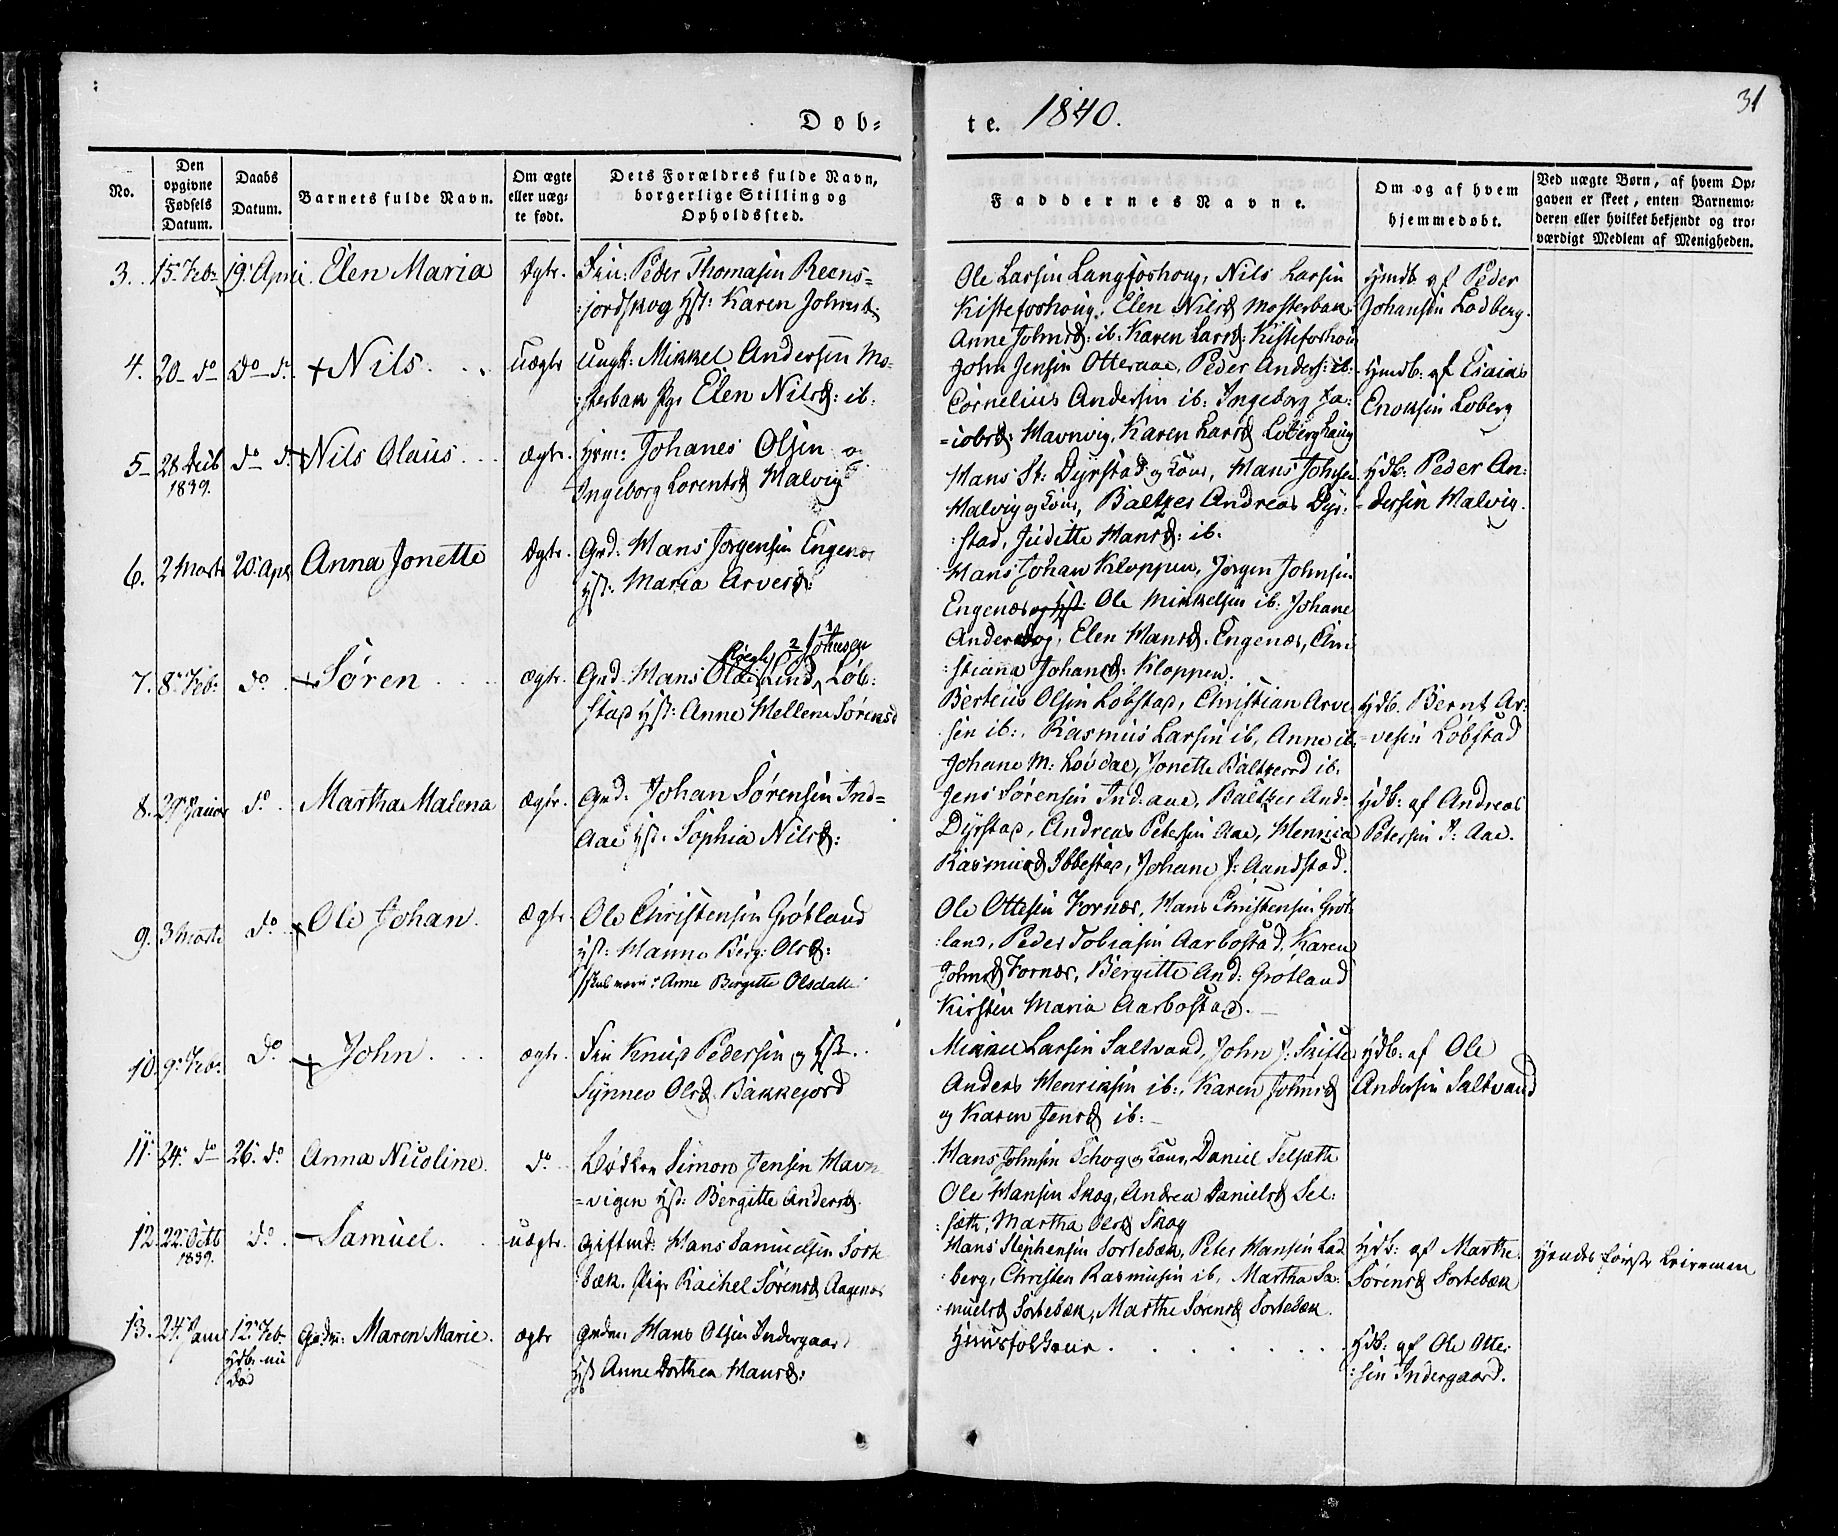 Døb-
te. 1840.
31
No.
Den opgivne Fødsels Datum.
Daabs Datum.
Barnets fulde Navn.
Om ægte eller uægte født.
Dets Forældres fulde Navn, borgerlige Stilling og Opholdssted.
Faddernes Navne.
Om og af hvem hjemmedøbt.
Ved uægte Børn, af hvem Opgaven er skeet, enten Barnemoderen eller hvilket bekjendt og troværdigt Medlem af Menigheden.
3. 15 Febr 19 April Elen Maria Ægte. Peder Thomasen Reens-
:jordskog Hst: Karen Johnsd.
Ole Larsen Langfoshoug, Nils Larsen
Kistefoshoug, Elen Nilsd Mosterbak
Anne Johnsd: ib. Karen Larsd: Kistefoshoug
Hmdb. af Peder
Johansen Lodberg.
4. 20 do do do + Nils. Uægte Ungk: Mikkel Andersen Mo-
:sterbak Pge Elen Nilsd: ib.
John Jensen Otteraae, Peder Anders: ib:
Cornelius Andersen ib: Ingeborg Ja-
=cobsd: Havnvig, Karen Larsd Loberghaug
Hmdb: af Esaias
Enoksen Loberg
5 28 Decb 1839. do do Nils Olaus. ægte. Johanes Olsen og
Ingeborg Lorentsd Malvig
Hans St: Dyrstad og Kone, Hans Johnsen
Malvig og Kone, Baltzer Andreas Dyr-
:stad, Judette Hansd: ib.
Hdb: Peder An-
dersen Malvig.
6. 2 Marts 20 Apr Anna Jonette Ægte. Grd: Hans Jørgensen Engenæs
Hst: Maria Arvesd:
Hans Johan Kloppen, Jørgen Johnsen
Engenæs og Hst: Ole Mikkelsen ib: Johane
Elen Hansd. Engenæs, Chri-
:stiana Johansd: Kloppen.
7. 8 Feb: do. Søren ægte. Grd. Hans Lind, Løb-
stad Hst: Anne Mellene Sørensd
Berteus Olsen Løbstad, Christian Arve-
sen ib:, Rasmus Larsen ib, Anne ib.
Johane M: Løvdal, Jonette Baltzersd ib.
Hdb. Bernt Ar-
=vesen Løbstad
8. 29 Januar do. Martha Malena ægte. Grd: Johan Sørensen Ind-
Aae Hst. Sophia Nilsd:
Jens Sørensen Ind.aae, Baltzer And:
Dyrstad, Andreas Petersen Aae, Henrica
Rasmusd Ibbestad, Johane J: Aandstad.
Hdb: af Andreas
Petersen I: Aae.
9. 3 Marts do Ole Johan. Ægte. Ole Christensen Grøtland
Hst: Hanna Berg: Olsd:
skal være: Anne Bergitte Olsdatter
Ole Ottesen Fornæs, Hans Christensen Grøt-
:land, Peder Tobiasen Aarbostad, Karen
Johnsd Fornæs, Bergitte And: Grøtland
Kirsten Maria Aarbostad.
10. 9 Feb: do John. ægte. Knud Pedersen og Hst
Synnev Olsd. Bakkejord
Mikkel Larsen Saltvand, John J:
Anders Henriksen ib:, Karen Johnsd
og Karen Jensd ib:
Hdb: af Ole
Andersen Saltvand
11. 24 do 26. do Anna Nicoline. do Bødker Simon Jensen Havn-
=vigen Hst: Bergitte Andersd.
Hans Johnsen Schog og Kone, Daniel Selsæth
Ole Hansen Skog, Andrea Danielsd Sel-
:sæth, Martha Olsd Skog
12. 22 Octb 1839. do. Samuel. uægte. Giftmd: Hans Samuelsen Sort-
bæk. Pige Rachel Sørensd Aagenæs
Hans Stephensen Sortebæk, Peter Hansen Lad-
berg, Christen Rasmusen ib, Martha Sa-
muelsd Sortebæk, Marthe Sørensd Sortebæk.
Hdb: af Marthe
Sørensd Sortebæk
Hendes første Leiermaal
13. 24 Janu 12 Feb. Hdb. nu død Maren Marie. ægte Hans Olsen Indergaard
Hst Anne Dorthea Hansd:
Huusfolkene . . . . . . .
Hdb: af Ole Otte-
:sen Indergaard.